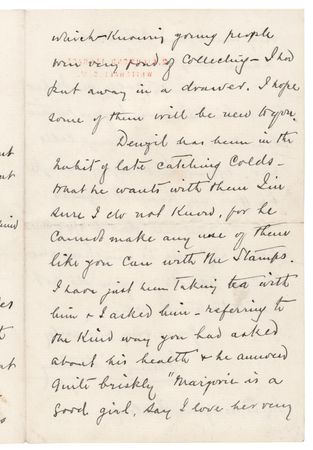 which - Knowing young people
were very fond of Collecting - I had
put away in a drawer. I hope
some of them will be new to you.
Denzil has been in the
habit of late catching Colds -
What he wants with them I'm
sure I do not Know, for he
Cannot make any use of them
like you can with the Stamps.
I have just been taking tea with
him & I asked him - referring to
the Kind way you had asked
about his health & he answered
quite briskly "Marjorie is a
good girl, say I love her very